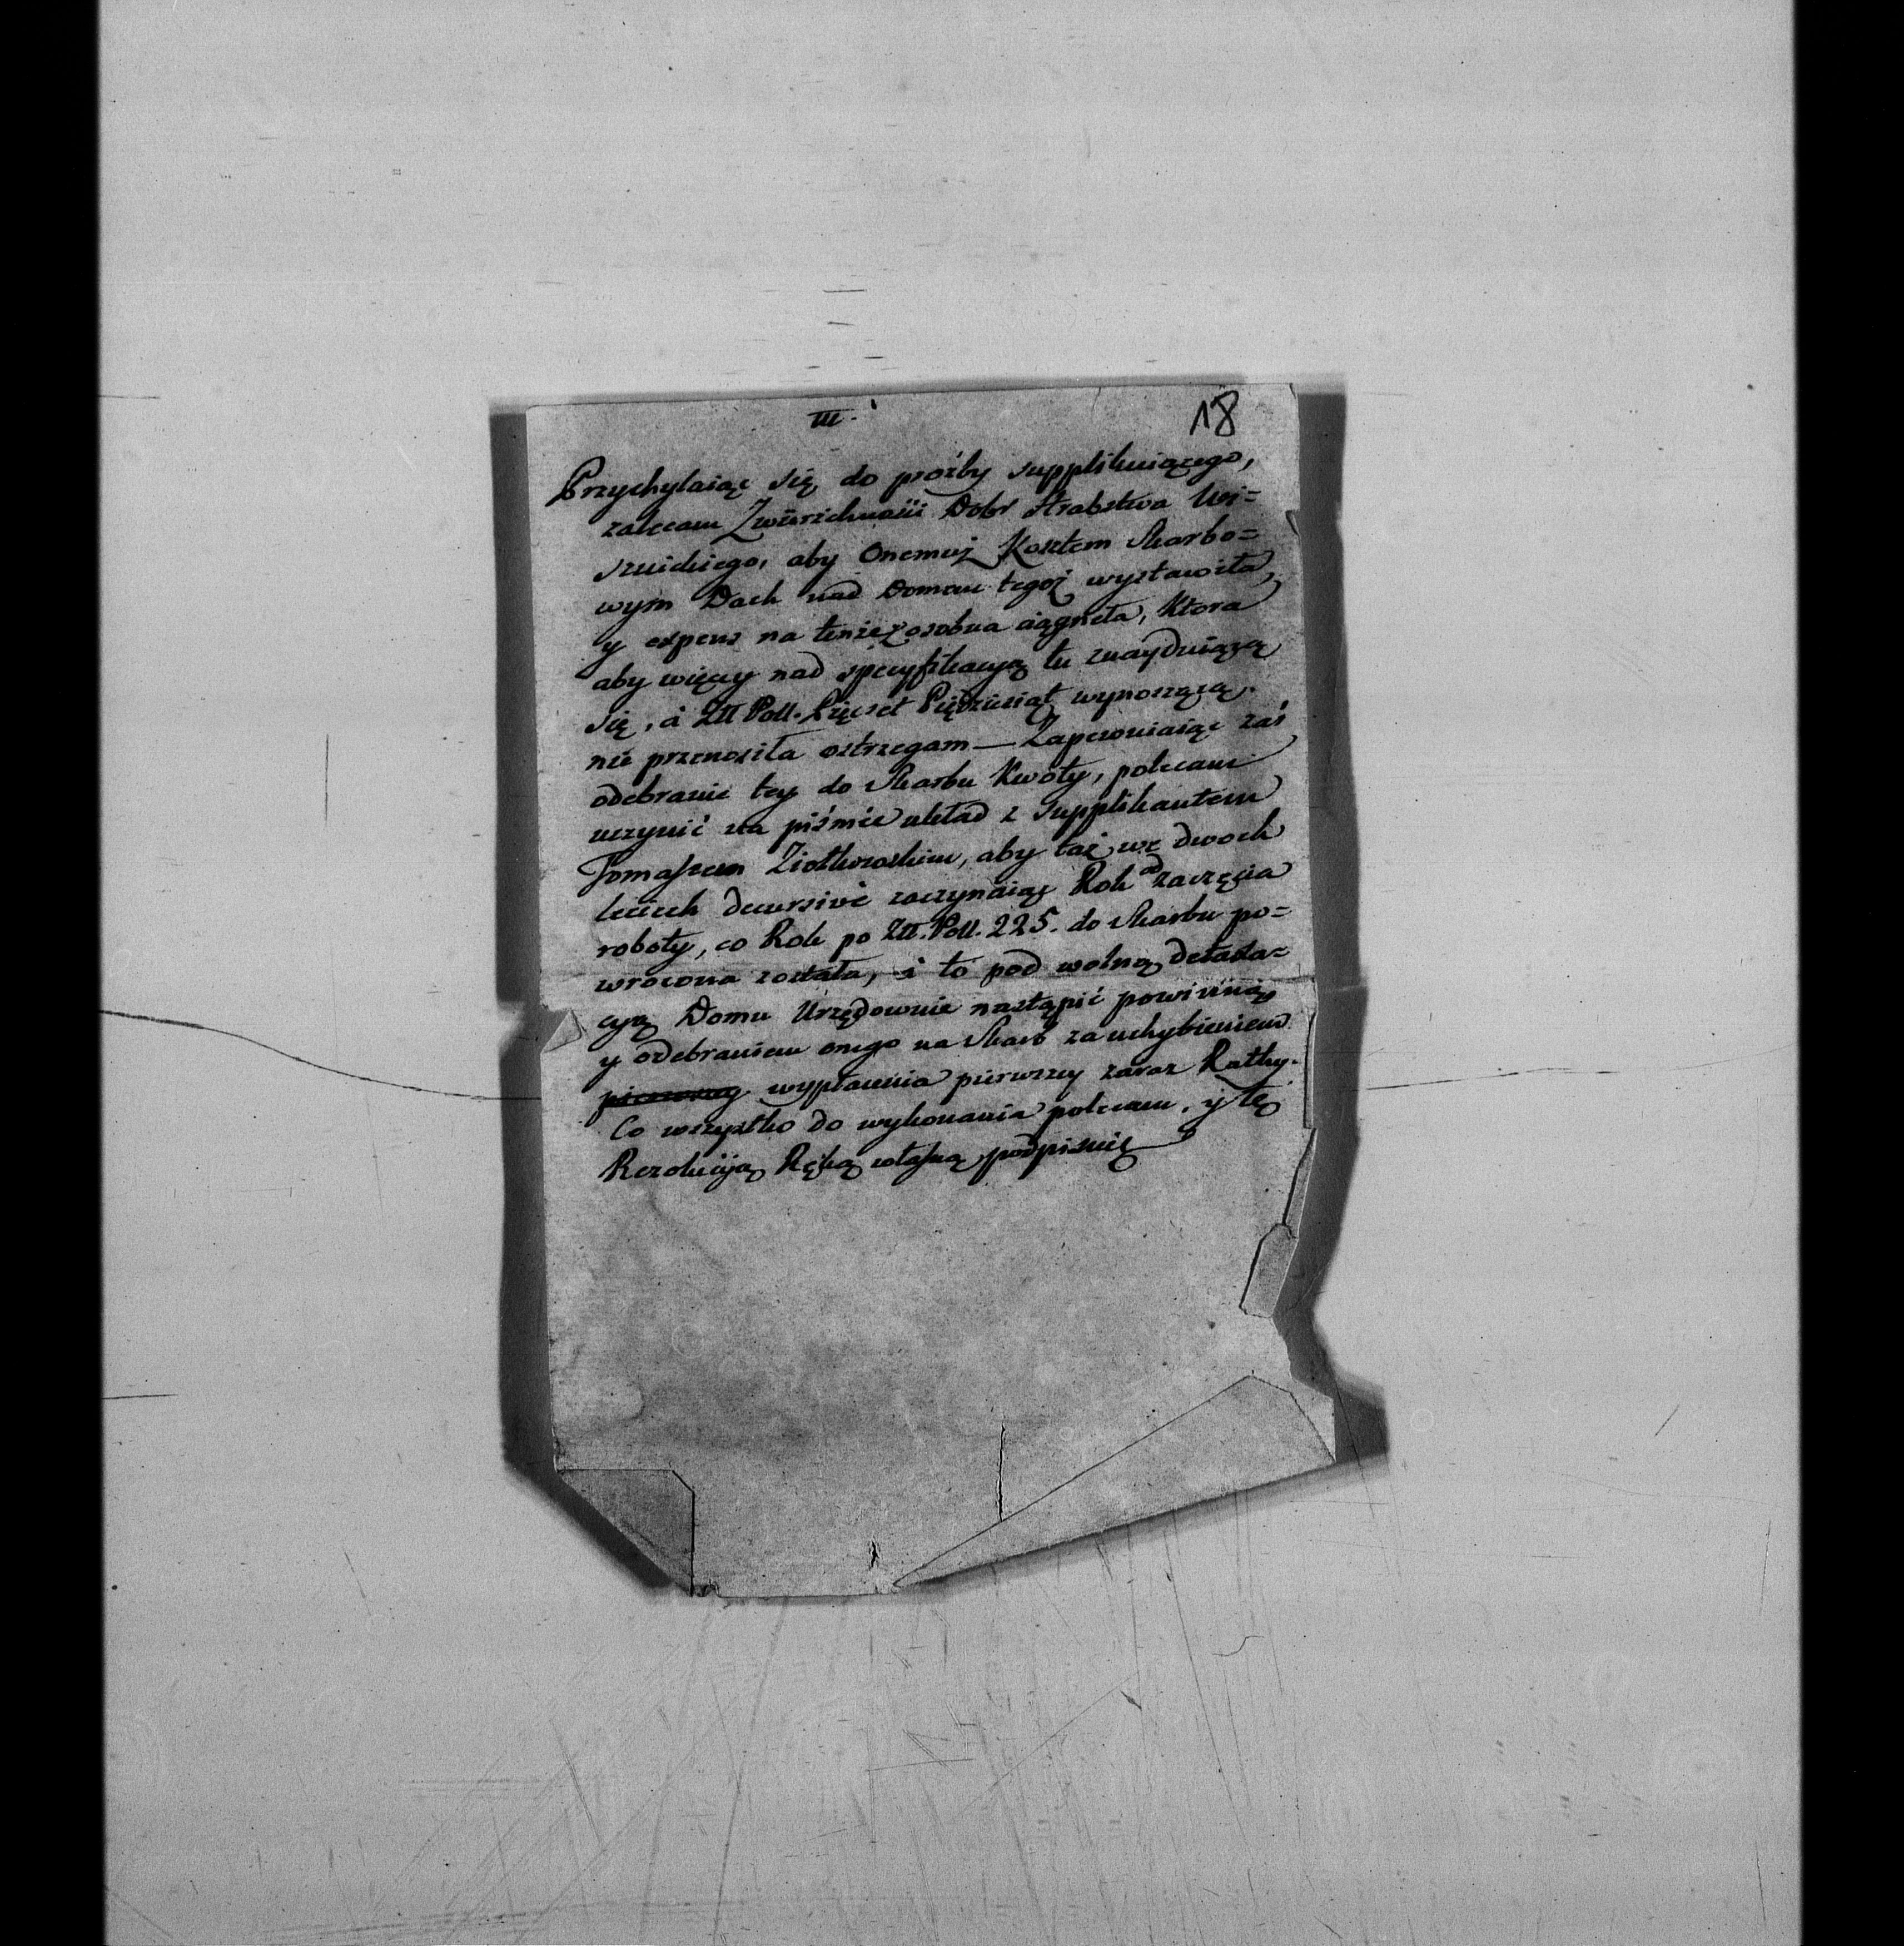 III.
18
Przychylaiąc się do prośby supplikuiącego,
zalecam Zwierzchności Dobr Hrabstwa Wi=
sznickiego, aby Onemuż Kosztem Skarbo=
wym Dach nad Domem tegoż wystawiła,
y expens na tenże zosobna ciągneła, Ktora
aby więcey nad specyfikacyą tu znayduiącą
się, á Złł Poll. Pięćset Pięćdziesiąt wynoszącą,
nie przenosiła ostrzegam — Zapewniaiąc zaś
odebranie tey do Skarbu Kwoty, polecam
uczynić na piśmie układ z Supplikantem
Tomaszem Ziołkowskim, aby taż we dwoch
leciech decursive zaczynaiąc Rok od zaczęcia
roboty, co Rok po Złł. Poll. 225. do Skarbu po=
wrocona została, i to pod wolną detaxa=
cyą Domu Urzędownie nastąpić powinną,
y odebraniem onego na Skarb za uchybieniem
pierwszey wypłacenia pierwszey zaraz Rathy.
Co wszystko do wykonania polecam, y tę
Rezolucyią Ręką własną podpisuię